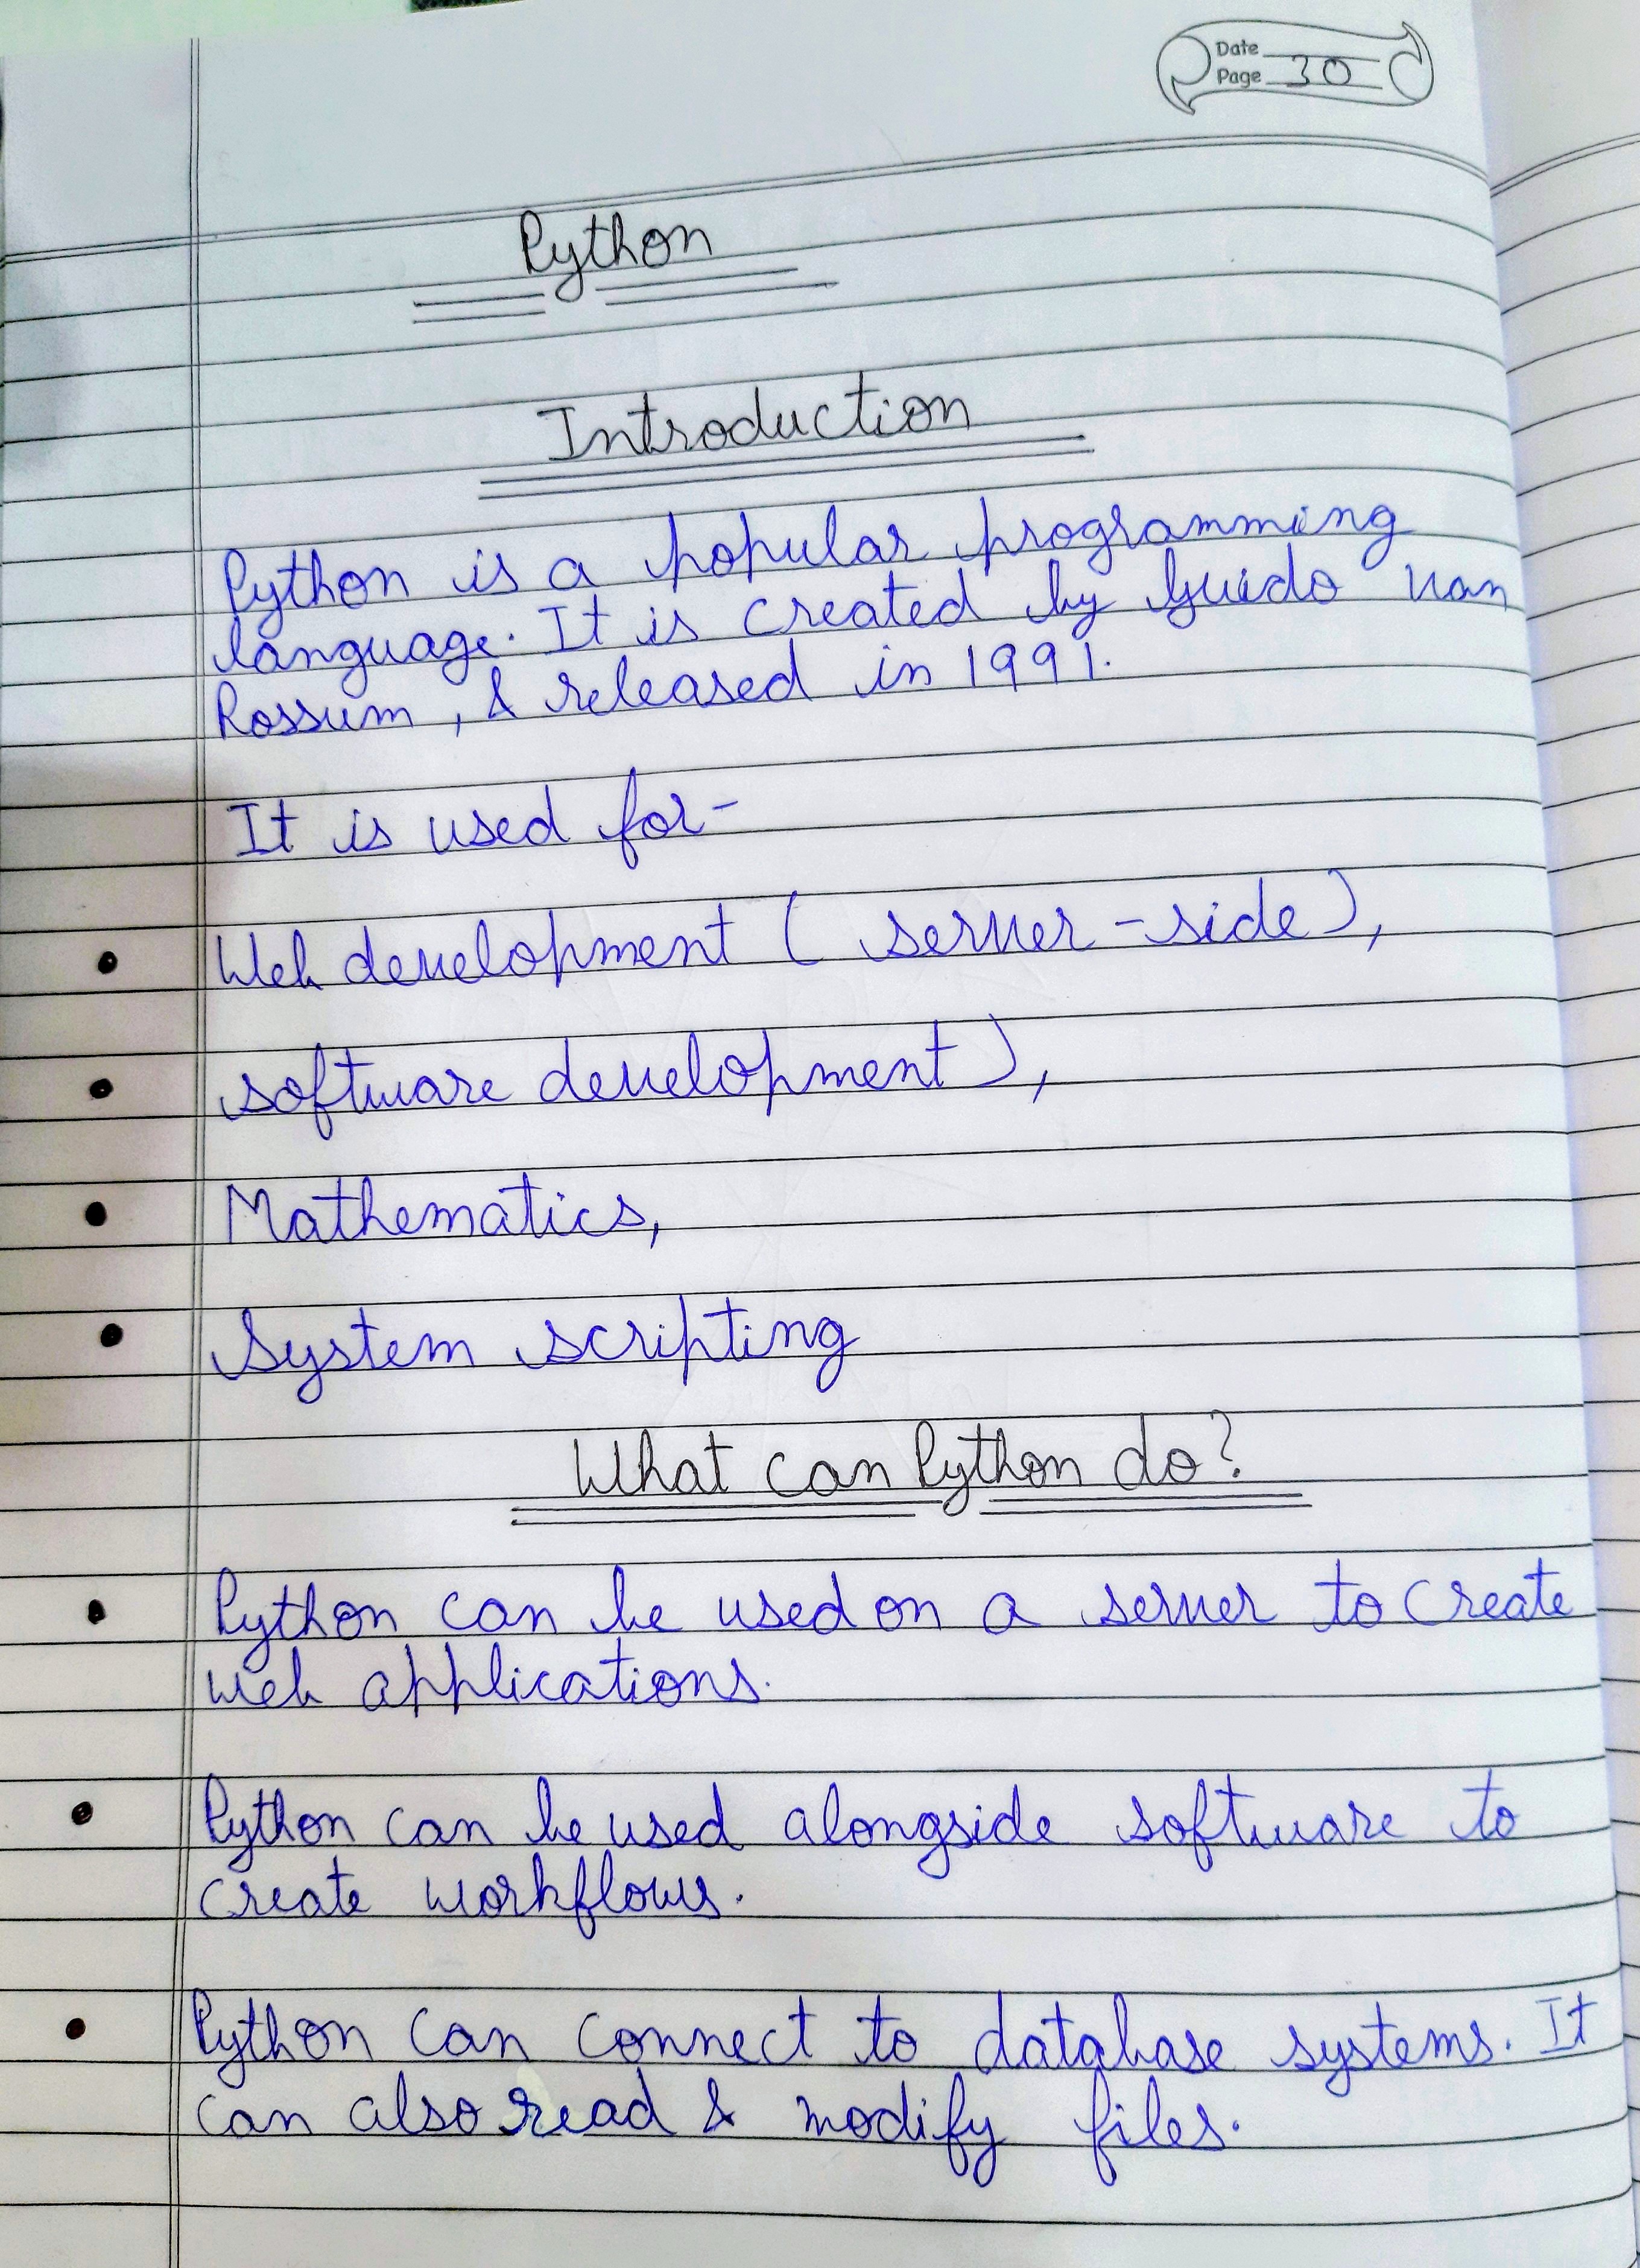 Date
Page 30
Python
Introduction
Python is a popular programming
language. It is created by Guido van
Rossum, & released in 1991.
It is used for-
• Web development ( server - side),
• software development),
• Mathematics,
• System scripting
What can Python do?
• Python can be used on a server to create
web applications.
• Python can be used alongside software to
create workflows.
• Python can connect to database systems. It
can also read & modify files.